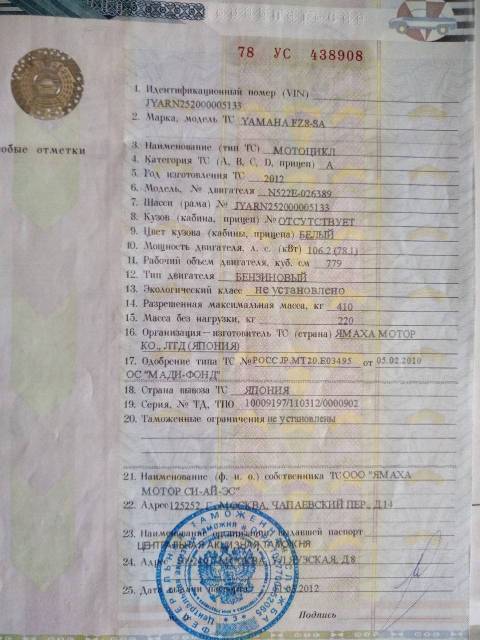 78 УС 438908
1. Идентификационный номер (VIN)
JYARN252000005133
2. Марка, модель ТС YAMAHA FZ8-SA
обые отметки
3. Наименование (тип ТС) МОТОЦИКЛ
4. Категория ТС (A, B, C, D, прицеп) A
5. Год изготовления ТС 2012
6. Модель, № двигателя N522E-026389
7. Шасси (рама) № JYARN252000005133
8. Кузов (кабина, прицеп) № ОТСУТСТВУЕТ
9. Цвет кузова (кабины, прицепа) БЕЛЫЙ
10. Мощность двигателя, л. с. (кВт) 106.2 (78.1)
11. Рабочий объем двигателя, куб. см 779
12. Тип двигателя БЕНЗИНОВЫЙ
13. Экологический класс не установлено
14. Разрешенная максимальная масса, кг 410
15. Масса без нагрузки, кг 220
16. Организация—изготовитель ТС (страна) ЯМАХА МОТОР
КО., ЛТД (ЯПОНИЯ)
17. Одобрение типа ТС № РОСС JP.MT20.E03495 от 05.02.2010
ОС "МАДИ-ФОНД"
18. Страна вывоза ТС ЯПОНИЯ
19. Серия, № ТД, ТПО 10009197/110312/0000902
20. Таможенные ограничения не установлены
21. Наименование (ф. и. о.) собственника ТС ООО "ЯМАХА
МОТОР СИ-АЙ-ЭС"
22. Адрес 125252, Г. МОСКВА, ЧАПАЕВСКИЙ ПЕР., Д.14
23. Наименование организации, выдавшей паспорт
ЦЕНТРАЛЬНАЯ АКЦИЗНАЯ ТАМОЖНЯ
24. Адрес МОСКВА, УЛ.ЯУЗСКАЯ, Д.8
25. Дата выдачи паспорта 2012
Подпись